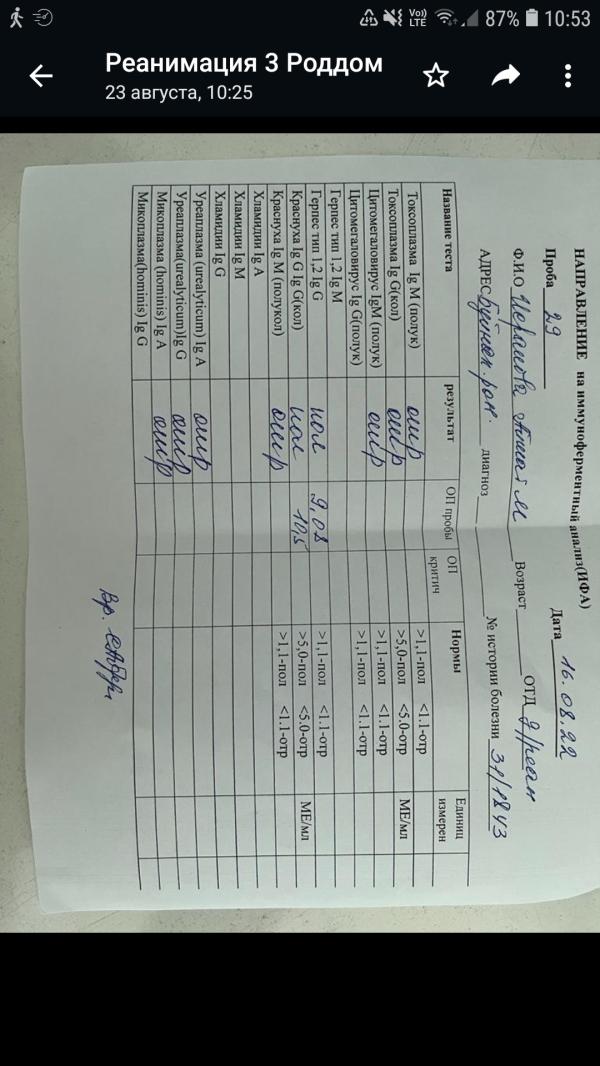 Vo)) LTE 87% 10:53
Реанимация 3 Роддом
23 августа, 10:25
НАПРАВЛЕНИЕ на иммуноферментный анализ(ИФА)
Проба 29 Дата 16.08.22
Ф.И.О М Возраст ОТД
АДРЕС диагноз № истории болезни 31/1843
Название теста результат ОП пробы ОП критич Нормы Единиц измерен
Токсоплазма Ig M (полук) отр >1,1-пол <1.1-отр
Токсоплазма Ig G(кол) отр >5,0-пол <5.0-отр МЕ/мл
Цитомегаловирус IgM (полук) отр >1,1-пол <1.1-отр
Цитомегаловирус Ig G(полук) >1,1-пол <1.1-отр
Герпес тип 1,2 Ig M
Герпес тип 1,2 Ig G пол 9,08 >1,1-пол <1.1-отр
Краснуха Ig G Ig G(кол) пол 10,5 >5,0-пол <5.0-отр МЕ/мл
Краснуха Ig M (полукол) отр >1,1-пол <1.1-отр
Хламидии Ig A
Хламидии Ig M
Хламидии Ig G
Уреаплазма (urealyticum) Ig A отр
Уреаплазма(urealyticum)Ig G отр
Микоплазма (hominis) Ig A отр
Микоплазма(hominis) Ig G
Вр.